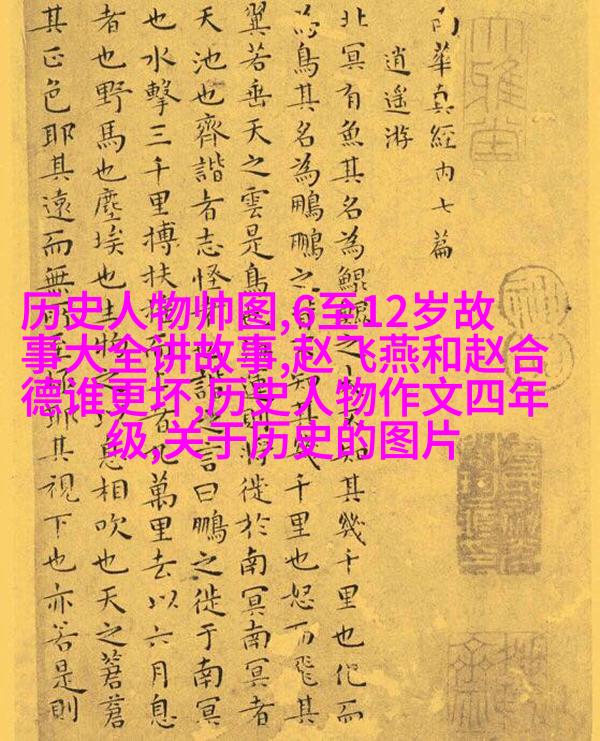 南華真經內七篇
逍遥游
北冥有魚其名為鯤鯤之知其幾千里也化而
為鳥其名為鵬鵬之幾千里也怒而飛其
翼若垂天之雲是鳥運則將徙於南冥南冥者
天池也齊諧者志怪諧之言曰鵬之徙于南冥
也水擊三千里搏扶而上者九萬里去以六月息
者也野馬也塵埃也生物之息相吹也天之蒼蒼
其正色耶其遠而無至極耶其視下也亦若是則
历史人物帅图,6至12岁故
事大全讲故事,赵飞燕和赵合
德谁更坏,历史人物作文四年
级,关于历史的图片